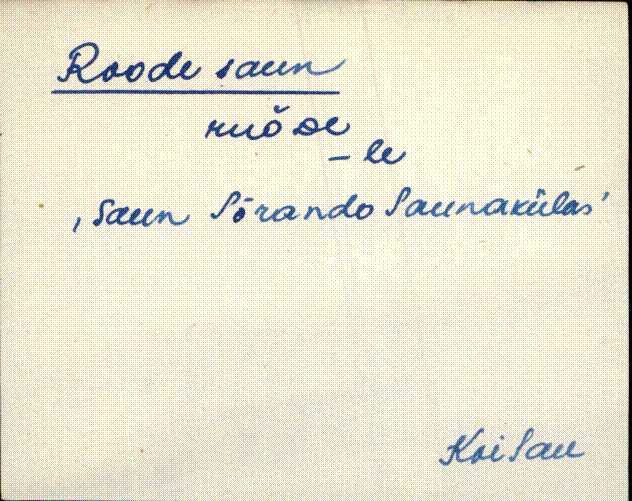 Roode saun
ruŏde
– le
‚saun Sõrando Saunakülas’
KoiSau